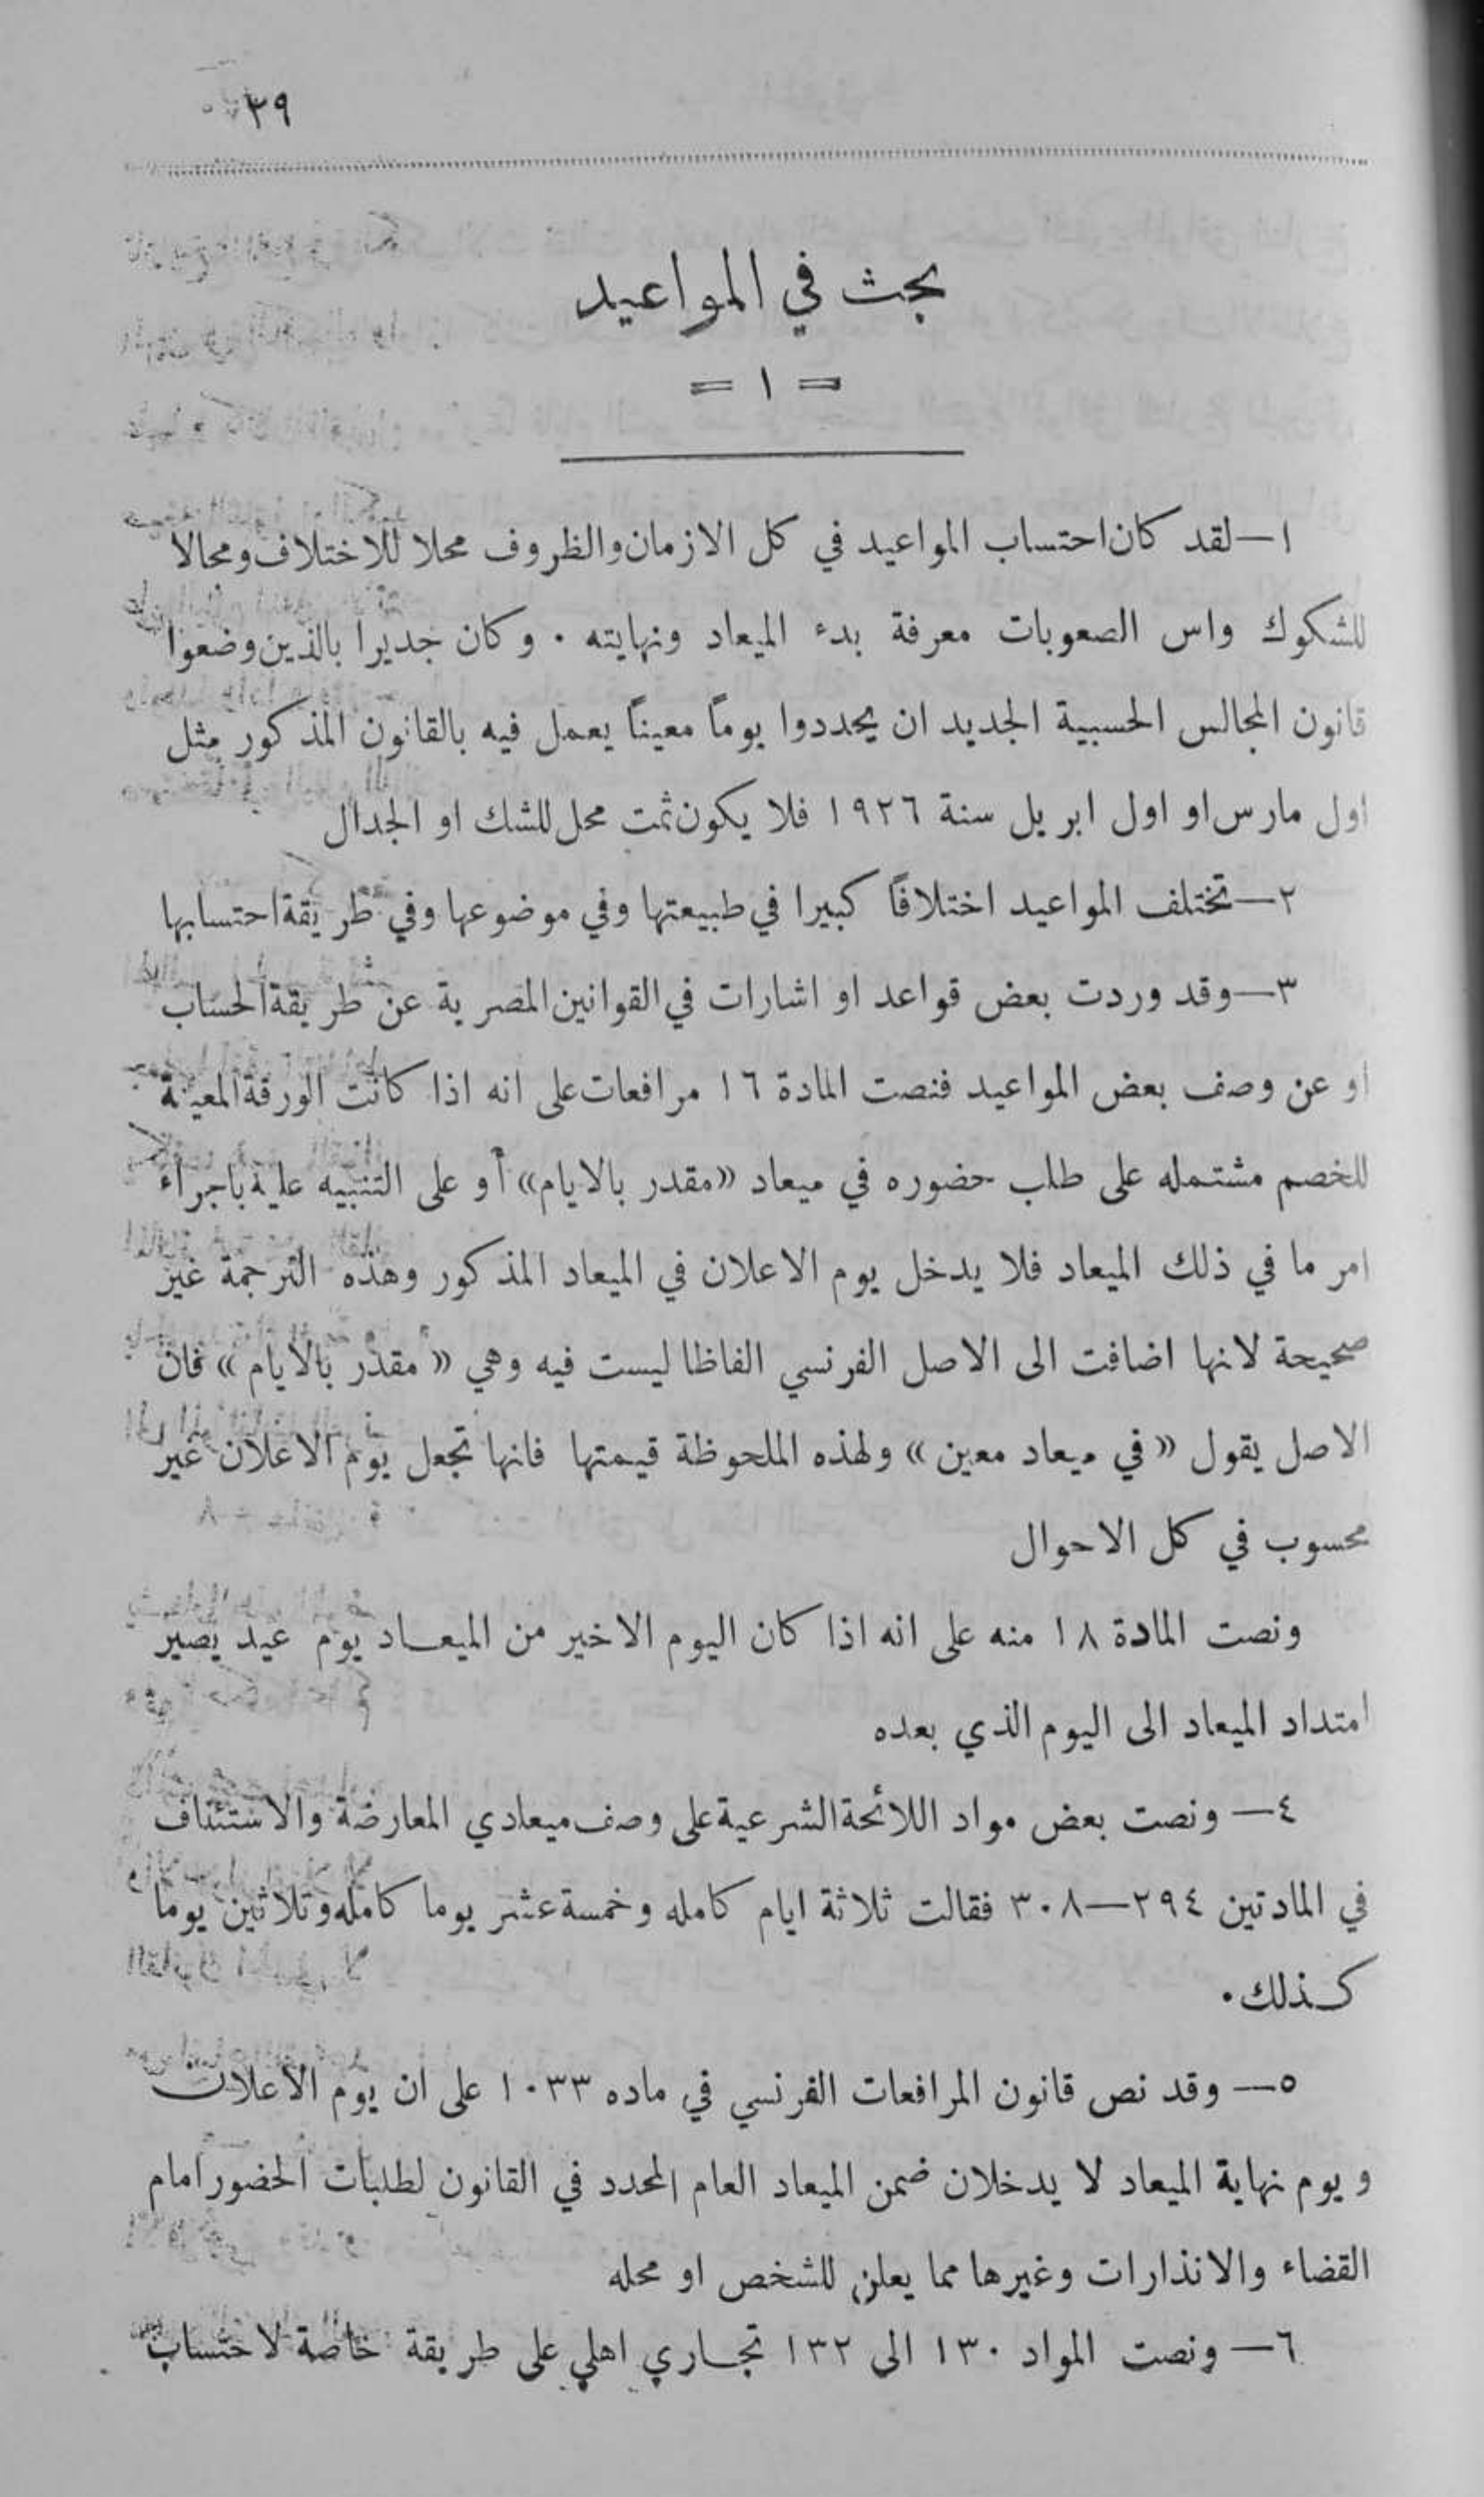 ٣٩
بحث في المواعيد
= ١ =
١—لقد كان احتساب المواعيد في كل الازمان والظروف محلا للاختلاف ومجالا
للشكوك واس الصعوبات معرفة بدء الميعاد ونهايته . وكان جديرا بالذين وضعوا
قانون المجالس الحسبية الجديد ان يحددوا يوماً معيناً يعمل فيه بالقانون المذكور مثل
اول مارس او اول ابريل سنة ١٩٢٦ فلا يكون ثمت محل للشك او الجدال
٢—تختلف المواعيد اختلافاً كبيرا في طبيعتها وفي موضوعها وفي طريقة احتسابها
٣—وقد وردت بعض قواعد او اشارات في القوانين المصرية عن طريقة الحساب
او عن وصف بعض المواعيد فنصت المادة ١٦ مرافعات على انه اذا كانت الورقة المعينة
للخصم مشتمله على طلب حضوره في ميعاد «مقدر بالايام» أو على التنبيه عليه باجراء
امر ما في ذلك الميعاد فلا يدخل يوم الاعلان في الميعاد المذكور وهذه الترجمة غير
صحيحة لانها اضافت الى الاصل الفرنسي الفاظا ليست فيه وهي « مقدر بالايام » فان
الاصل يقول « في ميعاد معين » ولهذه الملحوظة قيمتها فانها تجعل يوم الاعلان غير
محسوب في كل الاحوال
ونصت المادة ١٨ منه على انه اذا كان اليوم الاخير من الميعاد يوم عيد يصير
امتداد الميعاد الى اليوم الذي بعده
٤— ونصت بعض مواد اللائحة الشرعية على وصف ميعادي المعارضة والاستئناف
في المادتين ٢٩٤—٣٠٨ فقالت ثلاثة ايام كامله وخمسة عشر يوما كامله وثلاثين يوما
كذلك .
٥— وقد نص قانون المرافعات الفرنسي في ماده ١٠٣٣ على ان يوم الاعلان
ويوم نهاية الميعاد لا يدخلان ضمن الميعاد العام المحدد في القانون لطلبات الحضور امام
القضاء والانذارات وغيرها مما يعلن للشخص او محله
٦— ونصت المواد ١٣٠ الى ١٣٢ تجاري اهلي على طريقة خاصة لاحتساب